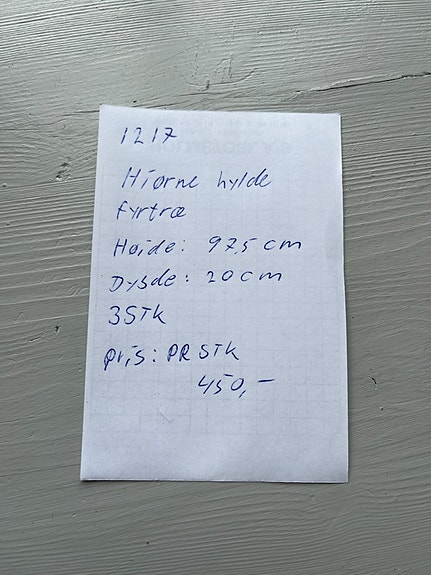 1217
Hiørne hylde
fyrtræ
Høide: 97,5 cm
Dybde: 20 cm
3 STK
pris: PR STK
450,-